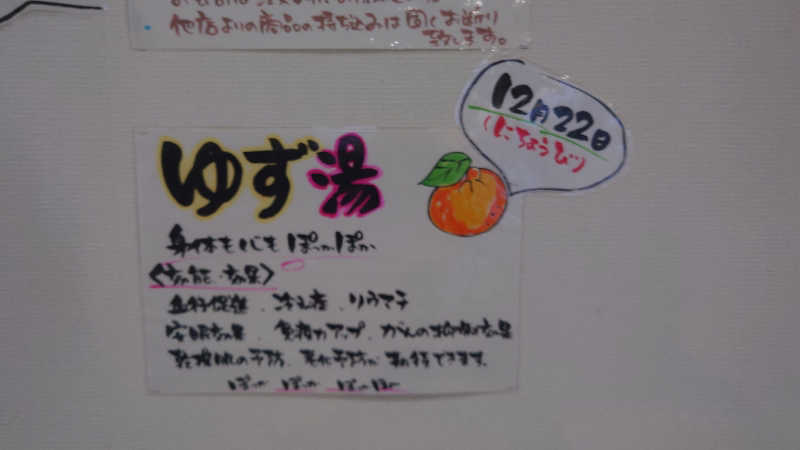 他店よりの商品の持込みは固くお断り
致します。
12月22日
(にちようび)
ゆず湯
身体も心もぽっかぽか
<効能・効果>
血行促進、冷え症、リウマチ
安眠効果、免疫力アップ、がんの抑制効果
乾燥肌の予防、老化予防が期待できます。
ぽっか ぽっか ぽっかぽか